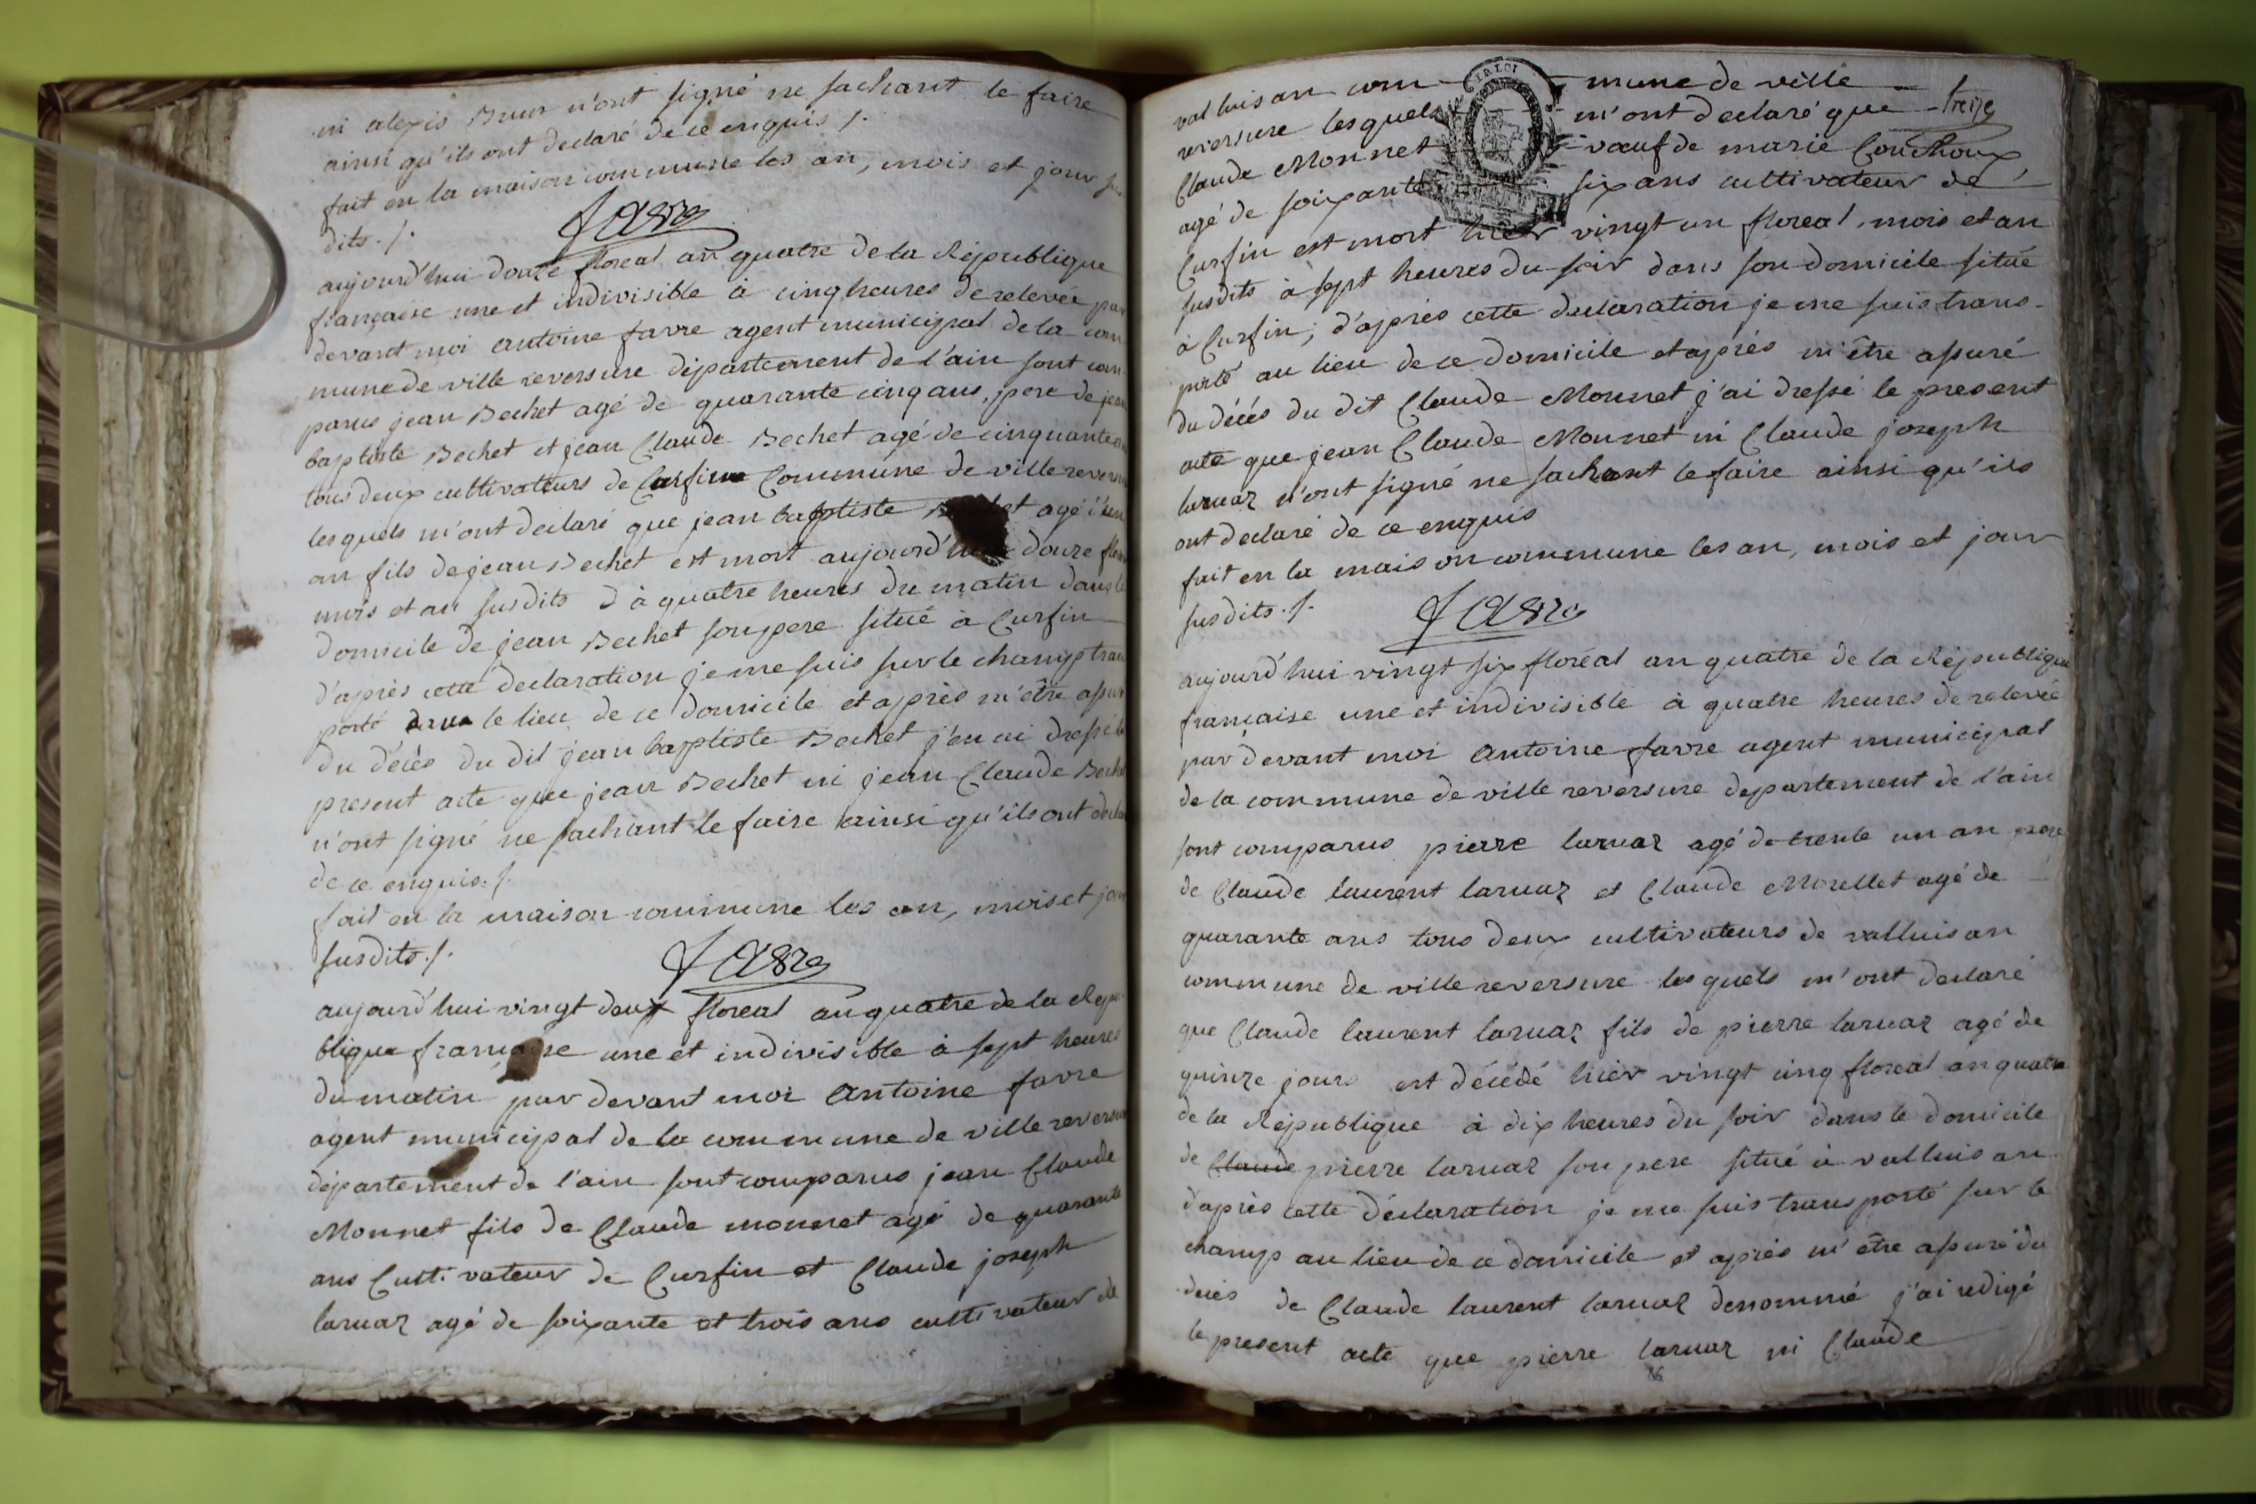 ni alexis Brun n'ont signé ne sachant le faire
ainsi qu'ils ont declaré de ce enquis ./.
fait en la maison commune les an, mois et jour sus
dits ./.
favre
aujourd'hui douze floreal an quatre de la République
française une et indivisible à cinq heures de relevée par
devant moi antoine favre agent municipal de la com
mune de ville reversure département de l'ain sont com
parus jean Bechet agé de quarante cinq ans, pere de jean
baptiste Bechet et jean Claude Bechet agé de cinquante
tous deux cultivateurs de Curfin Commune de ville reversure
lesquels m'ont declaré que jean baptiste Bechet agé d'un
an fils de jean Bechet est mort aujourd'hui douze floreal
mois et an susdits à quatre heures du matin dans le
domicile de jean Bechet son pere situé à Curfin
d'après cette declaration je me suis sur le champ trans
porté dans le lieu de ce domicile et après m'être assuré
du décès du dit jean baptiste Bechet j'en ai dressé le
present acte que jean Bechet ni jean Claude Bechet
n'ont signé ne sachant le faire ainsi qu'ils ont declaré
de ce enquis ./.
fait en la maison commune les an, mois et jour
susdits ./.
favre
aujourd'hui vingt deux floreal an quatre de la Répu
blique française une et indivisible à sept heures
du matin par devant moi antoine favre
agent municipal de la commune de ville reversure
département de l'ain sont comparus jean Claude
Monnet fils de Claude monnet agé de quarante
ans Cultivateur de Curfin et Claude joseph
laruaz agé de soixante et trois ans cultivateur de
valluisan com mune de ville
reversure lesquels m'ont declaré que treize
Claude Monnet vœuf de marie Couchoux
agé de soixante six ans cultivateur de
Curfin est mort hier vingt un floreal, mois et an
susdits à sept heures du soir dans son domicile situé
à Curfin; d'après cette declaration je me suis trans-
porté au lieu de ce domicile et après m'être assuré
du décés du dit Claude Monnet j'ai dressé le present
acte que jean Claude Monnet ni Claude joseph
laruaz n'ont signé ne sachant le faire ainsi qu'ils
ont declaré de ce enquis
fait en la maison commune les an, mois et jour
susdits ./.
favre
aujourd'hui vingt six floréal an quatre de la République
française une et indivisible à quatre heures de relevée
par devant moi antoine favre agent municipal
de la commune de ville reversure departement de l'ain
sont comparus pierre laruaz agé de trente un an pere
de Claude laurent laruaz et Claude Morellet agé de
quarante ans tous deux cultivateurs de valluisan
commune de ville reversure lesquels m'ont declaré
que Claude laurent laruaz fils de pierre laruaz agé de
quinze jours est décédé hier vingt cinq floreal an quatre
de la République à dix heures du soir dans le domicile
de Claude pierre laruaz son pere situé à valluisan
d'après cette déclaration je me suis transporté sur le
champ au lieu de ce domicile et après m'être assuré du
décès de Claude laurent laruaz denommé j'ai redigé
le present acte que pierre laruaz ni Claude